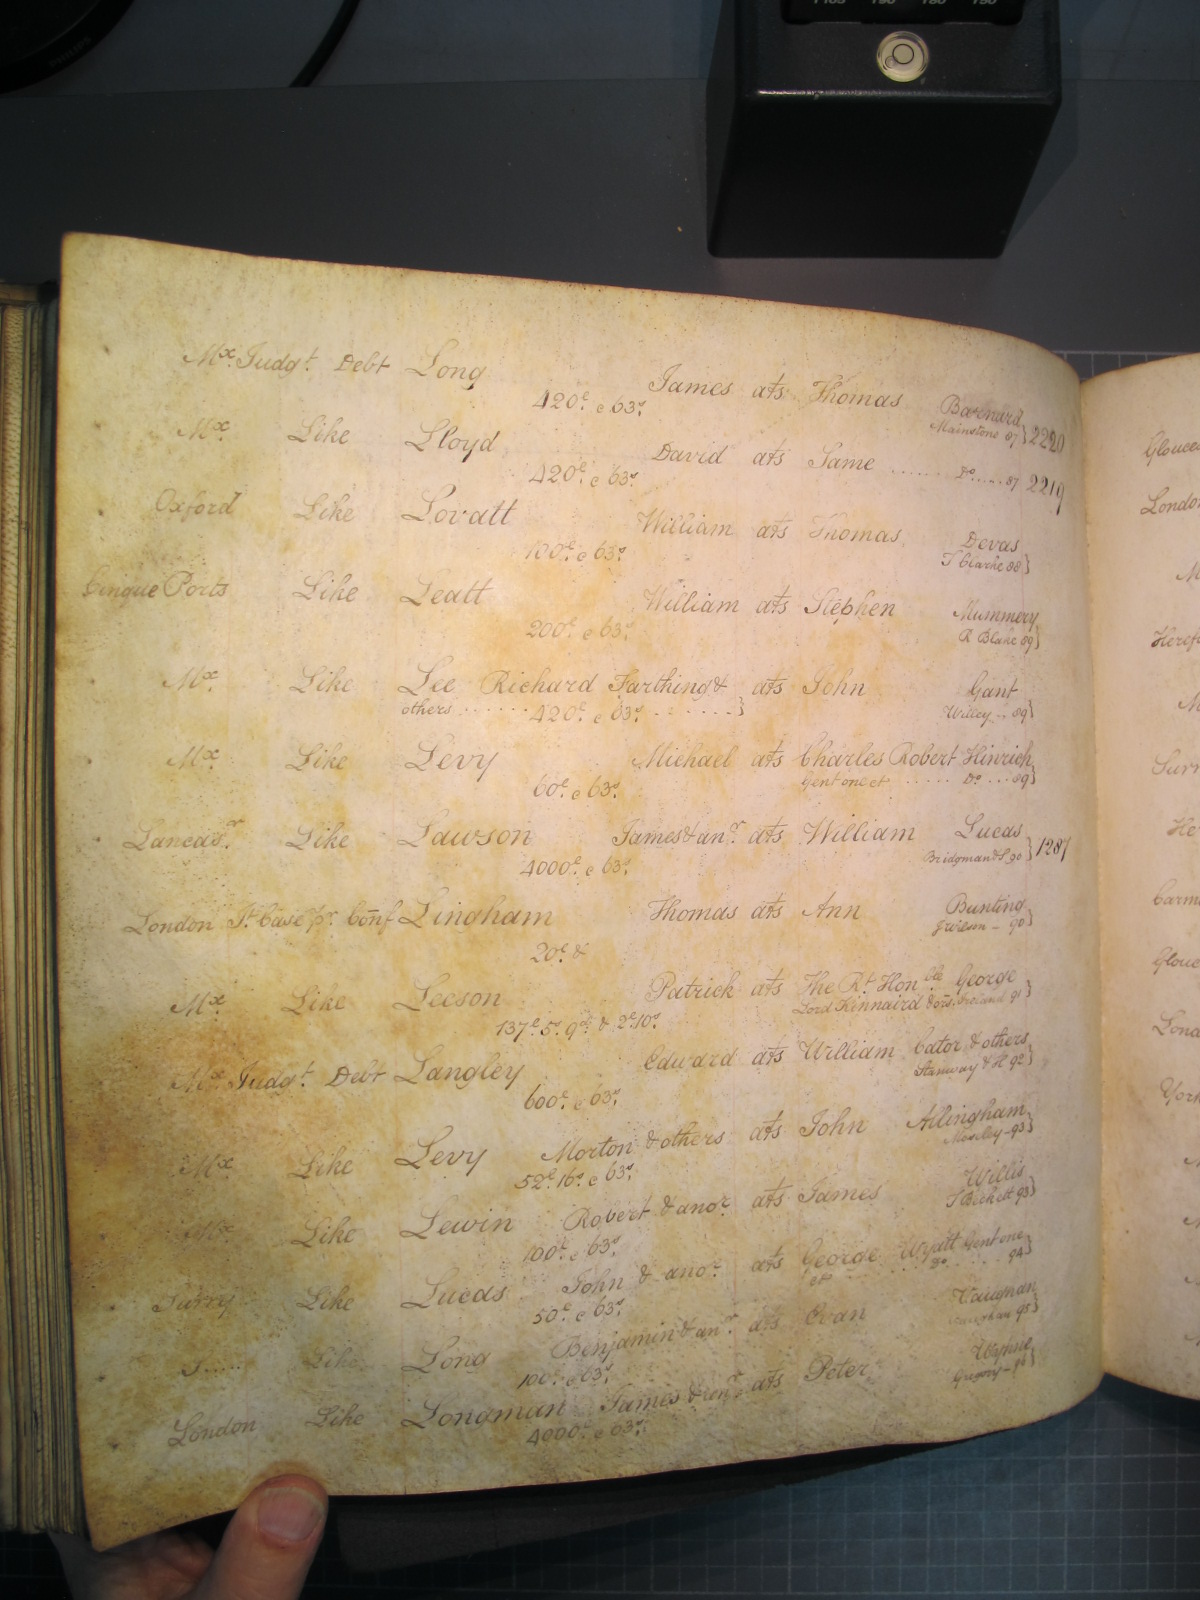 PHILIPS
Mx. Judgt. Debt Long James ats Thomas Barnard
420£ c 63s. Mainstone 87} 2220
Mx. Like Lloyd David ats Same ...... Do ..... 87 2219
420£ c 63s.
Oxford Like Lovatt William ats Thomas Devas
100£ c 63s. T Clarke 88}
Cinque Ports Like Leatt William ats Stephen Mummery
200£ c 63s. R Blake 89}
Mx. Like Lee Richard Farthing & ats John Gant
others ...... 420£ c 63s. ......} Willey .. 89}
Mx. Like Levy Michael ats Charles Robert Hinrich
60£ c 63s. Gent one et ...... Do ... 89}
Lancasr. Like Lawson James & anr. ats William Lucas
4000£ c 63s. Bridgman & S 90} 1287
London Jt. Case pr. Conf Lingham Thomas ats Ann Bunting
20£ & J Wilson - 90}
Mx. Like Leeson Patrick ats The Rt. Honble George
137£ 5s. 9d. & 2£ 10s. Lord Kinnaird & ors. Ireland 91}
Mx. Judgt. Debt Langley Edward ats William Cator & others
600£ c 63s. Stamway & H 92}
Mx. Like Levy Morton & others ats John Allingham
52£ 16s. c 63s. Moseley - 93}
Mx. Like Lewin Robert & anor. ats James Willis
100£ c 63s. T Beckett 93}
Surry Like Lucas John & anor. ats George Wyatt Gent one
50£ c 63s. et ...... Do ...... 94}
S...... Like Long Benjamin & anr. ats Evan Vaughan
100£ c 63s. Vaughan 95}
London Like Longman James & anr. ats Peter
4000£ c 63s. Gregory - 96}
London
M
M
Surr
He
Carm
Glouc
Lond
York